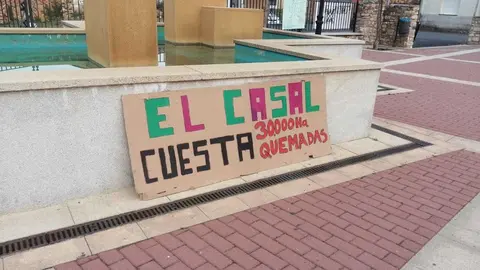 EL CASAL
CUESTA 30000Ha
QUEMADAS